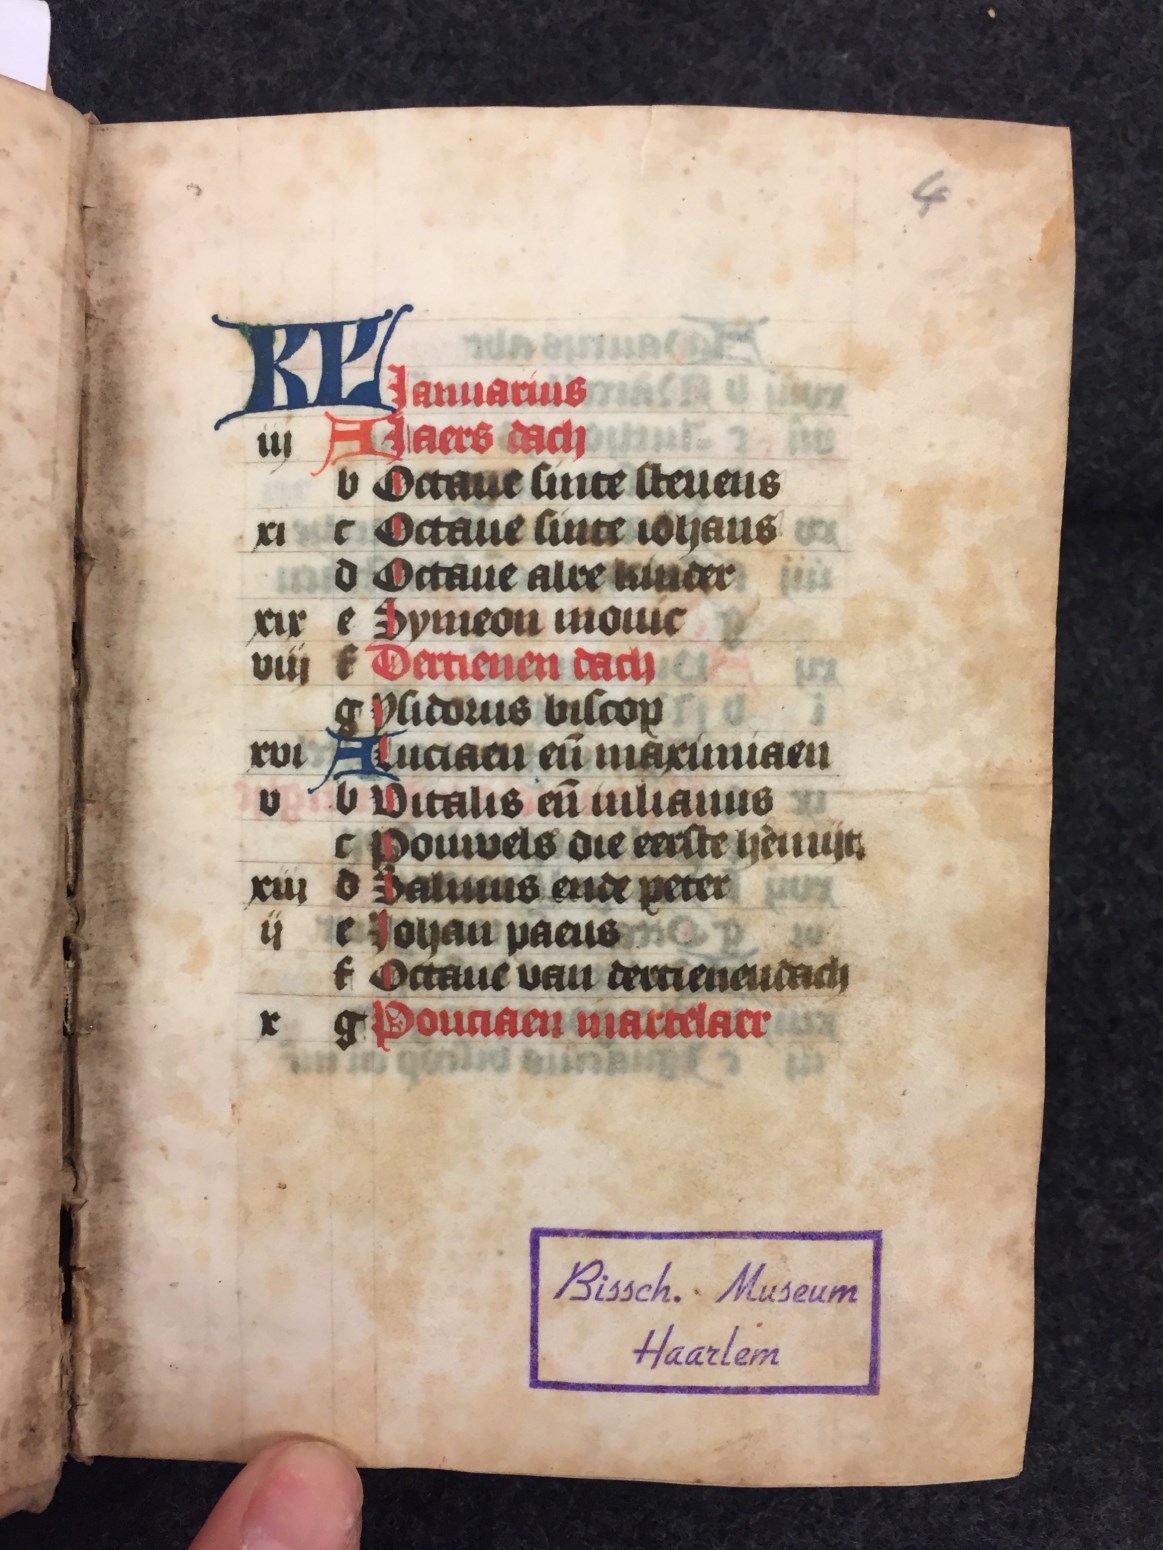 4
KL Ianuarius
iij A Iaers dach
b Octaue sinte steuens
xi c Octaue sinte iohans
d Octaue alre kinder
xix e Symeon monic
viij f Dertienen dach
g ysidorus biscop
xvi A Luciaen eñ maximiaen
v b Vitalis eñ iulianus
c Pouwels die eerste h̄emijt
xiij d Saluius ende peter
ij e Johan paeus
f Octaue van dertienendach
x g Ponciaen martelaer
Bissch. Museum
Haarlem